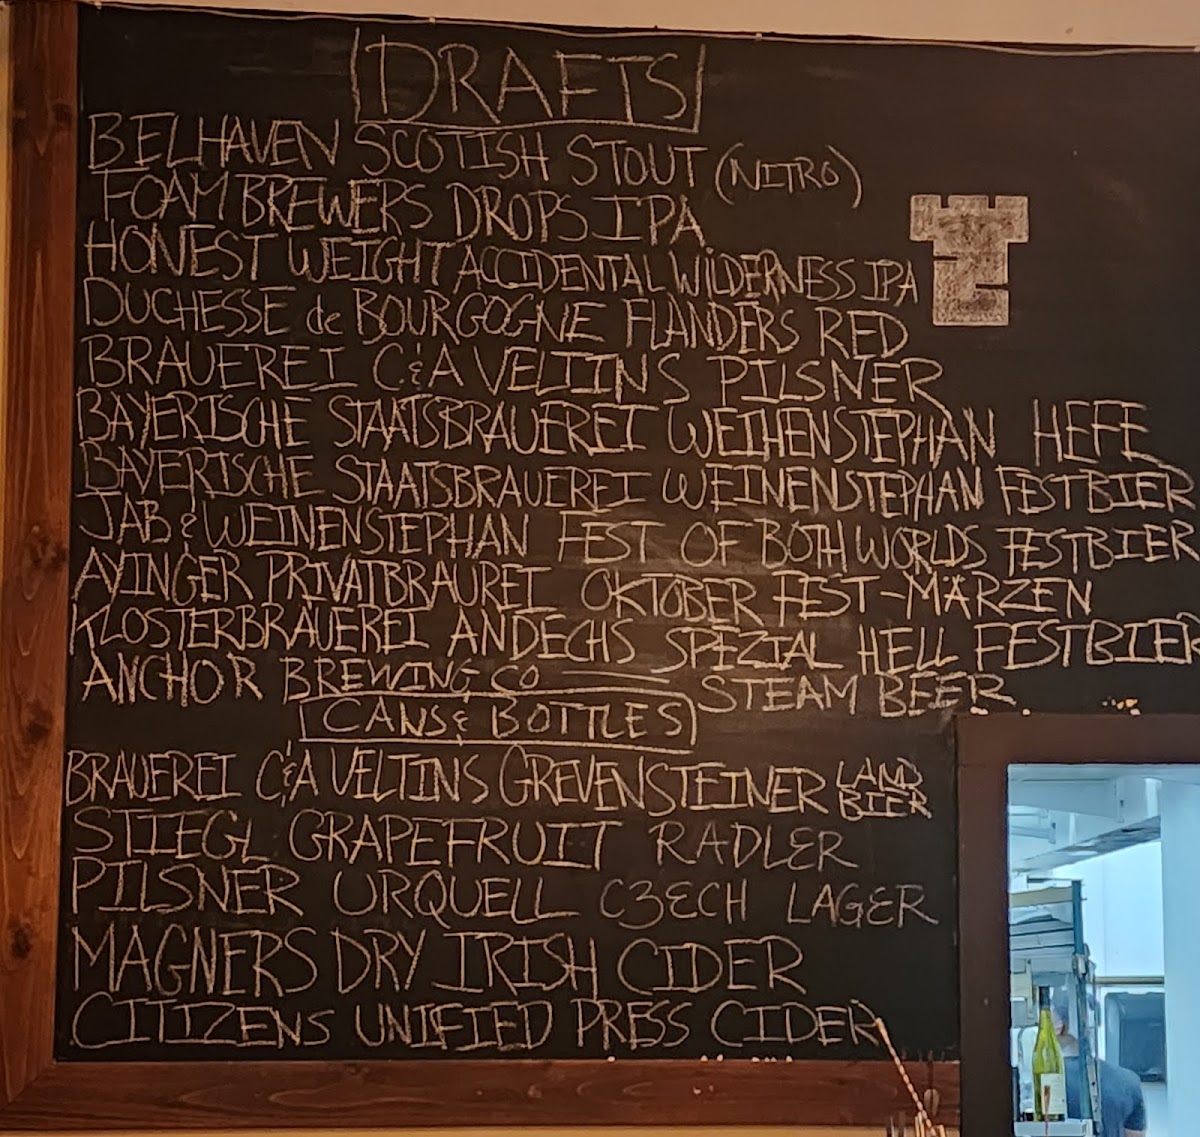 DRAFTS
BELHAVEN SCOTISH STOUT (NITRO)
FOAM BREWERS DROPS IPA
HONEST WEIGHT ACCIDENTAL WILDERNESS IPA
DUCHESSE de BOURGOGNE FLANDERS RED
BRAUEREI C.&A VELTINS PILSNER
BAYERISCHE STAATSBRAUEREI WEIHENSTEPHAN HEFE
BAYERISCHE STAATSBRAUEREI WEINENSTEPHAN FESTBIER
JAB & WEINENSTEPHAN FEST OF BOTH WORLDS FESTBIER
AYINGER PRIVATBRAUREI OKTOBER FEST-MÄRZEN
KLOSTERBRAUEREI ANDECHS SPEZIAL HELL FESTBIER
ANCHOR BREWING CO — STEAM BEER
CANS & BOTTLES
BRAUEREI C&A VELTINS GREVENSTEINER LAND BIER
STIEGL GRAPEFRUIT RADLER
PILSNER URQUELL CZECH LAGER
MAGNERS DRY IRISH CIDER
CITIZENS UNIFIED PRESS CIDER